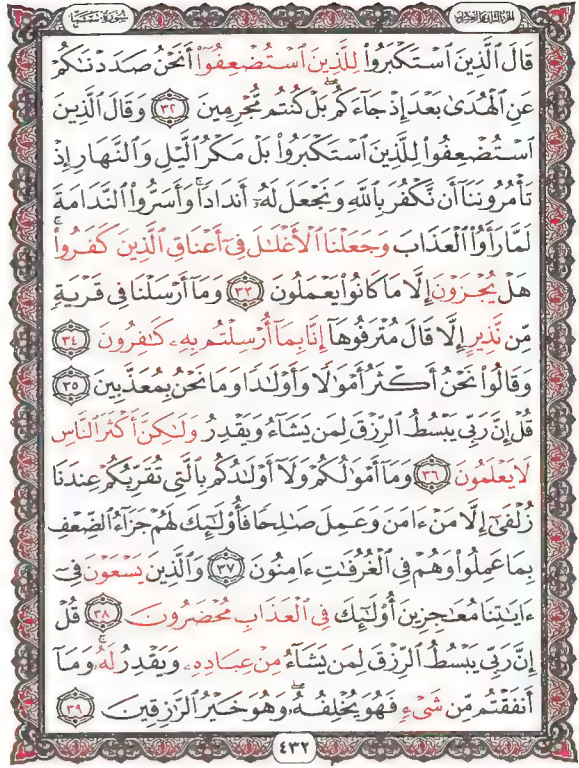 سورة سبأ الجزء الثاني والعشرون
قَالَ ٱلَّذِينَ ٱسْتَكْبَرُوا۟ لِلَّذِينَ ٱسْتُضْعِفُوٓا۟ أَنَحْنُ صَدَدْنَـٰكُمْ
عَنِ ٱلْهُدَىٰ بَعْدَ إِذْ جَآءَكُم ۖ بَلْ كُنتُم مُّجْرِمِينَ ٣٢ وَقَالَ ٱلَّذِينَ
ٱسْتُضْعِفُوا۟ لِلَّذِينَ ٱسْتَكْبَرُوا۟ بَلْ مَكْرُ ٱلَّيْلِ وَٱلنَّهَارِ إِذْ
تَأْمُرُونَنَآ أَن نَّكْفُرَ بِٱللَّهِ وَنَجْعَلَ لَهُۥٓ أَندَادًا ۚ وَأَسَرُّوا۟ ٱلنَّدَامَةَ
لَمَّا رَأَوُا۟ ٱلْعَذَابَ وَجَعَلْنَا ٱلْأَغْلَـٰلَ فِىٓ أَعْنَاقِ ٱلَّذِينَ كَفَرُوا۟ ۚ
هَلْ يُجْزَوْنَ إِلَّا مَا كَانُوا۟ يَعْمَلُونَ ٣٣ وَمَآ أَرْسَلْنَا فِى قَرْيَةٍ
مِّن نَّذِيرٍ إِلَّا قَالَ مُتْرَفُوهَآ إِنَّا بِمَآ أُرْسِلْتُم بِهِۦ كَـٰفِرُونَ ٣٤
وَقَالُوا۟ نَحْنُ أَكْثَرُ أَمْوَٰلًا وَأَوْلَـٰدًا وَمَا نَحْنُ بِمُعَذَّبِينَ ٣٥
قُلْ إِنَّ رَبِّى يَبْسُطُ ٱلرِّزْقَ لِمَن يَشَآءُ وَيَقْدِرُ وَلَـٰكِنَّ أَكْثَرَ ٱلنَّاسِ
لَا يَعْلَمُونَ ٣٦ وَمَآ أَمْوَٰلُكُمْ وَلَآ أَوْلَـٰدُكُم بِٱلَّتِى تُقَرِّبُكُمْ عِندَنَا
زُلْفَىٰٓ إِلَّا مَنْ ءَامَنَ وَعَمِلَ صَـٰلِحًا فَأُو۟لَـٰٓئِكَ لَهُمْ جَزَآءُ ٱلضِّعْفِ
بِمَا عَمِلُوا۟ وَهُمْ فِى ٱلْغُرُفَـٰتِ ءَامِنُونَ ٣٧ وَٱلَّذِينَ يَسْعَوْنَ فِىٓ
ءَايَـٰتِنَا مُعَـٰجِزِينَ أُو۟لَـٰٓئِكَ فِى ٱلْعَذَابِ مُحْضَرُونَ ٣٨ قُلْ
إِنَّ رَبِّى يَبْسُطُ ٱلرِّزْقَ لِمَن يَشَآءُ مِنْ عِبَادِهِۦ وَيَقْدِرُ لَهُۥ ۚ وَمَآ
أَنفَقْتُم مِّن شَىْءٍ فَهُوَ يُخْلِفُهُۥ ۖ وَهُوَ خَيْرُ ٱلرَّٰزِقِينَ ٣٩
٤٣٢